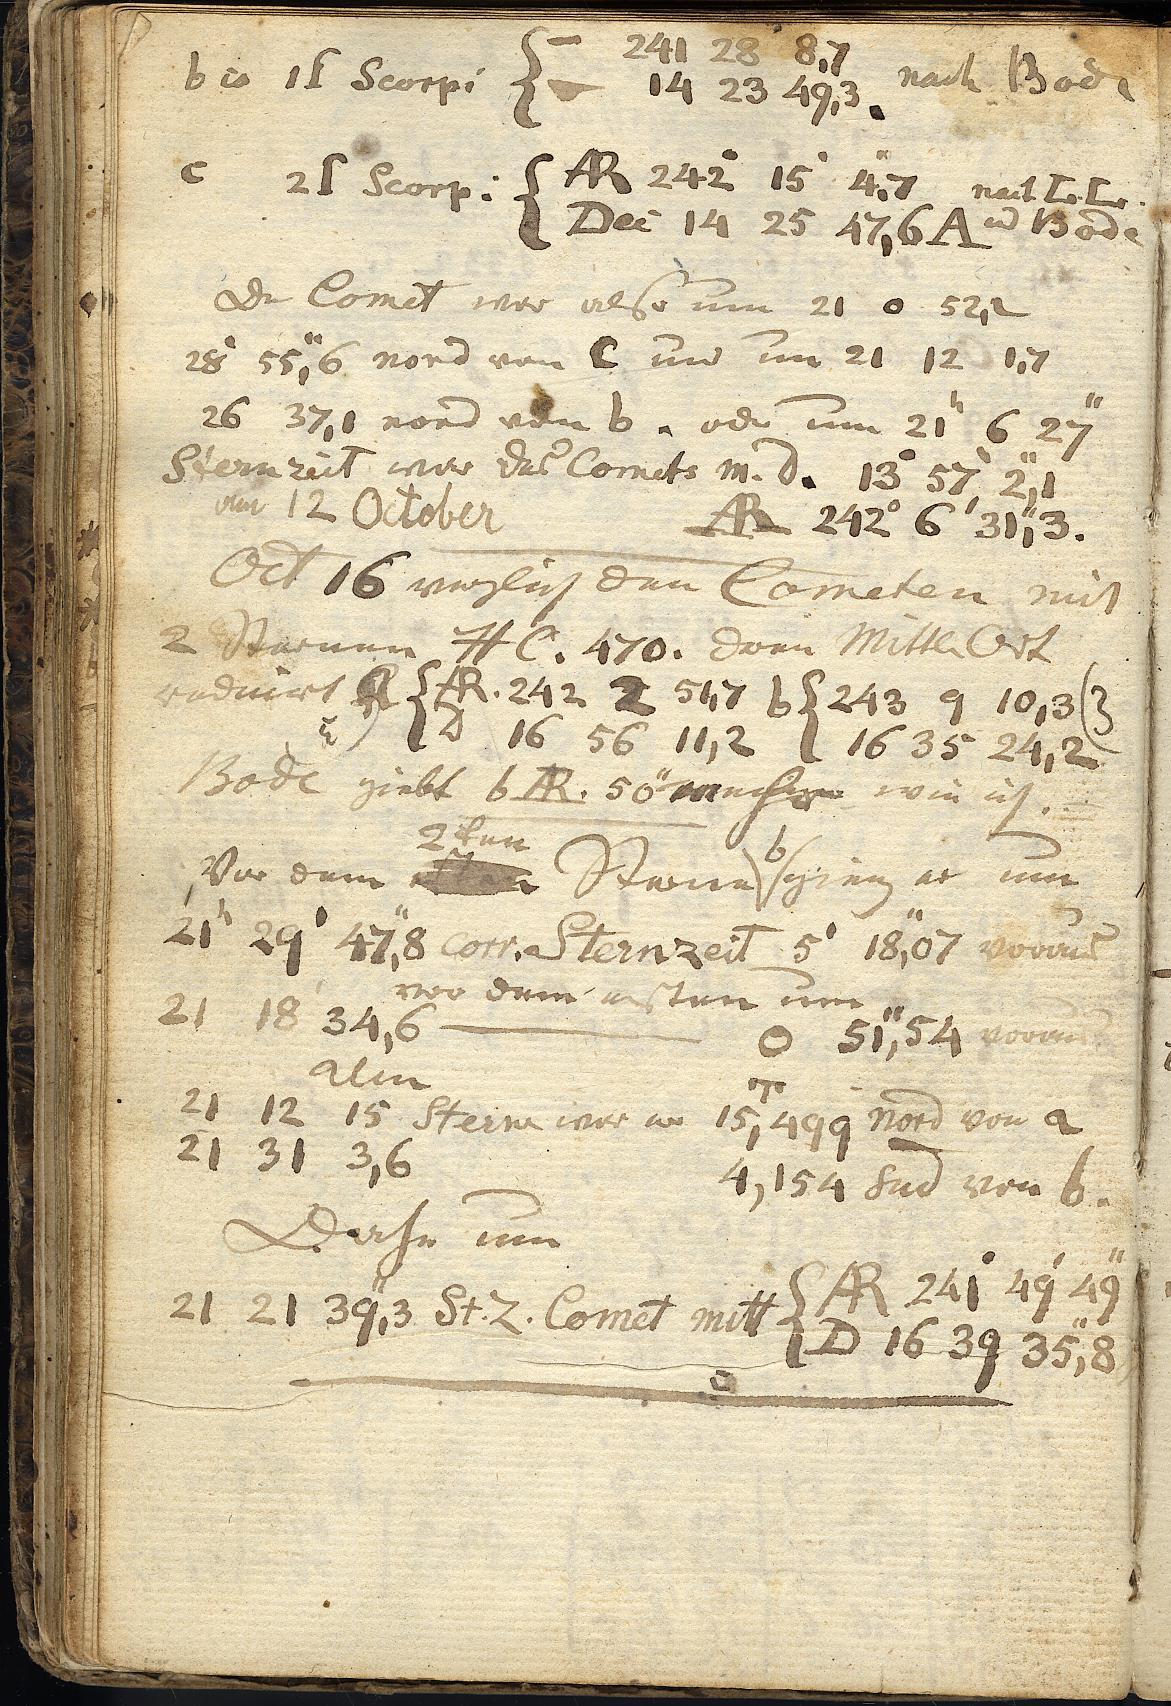 b 1ſ Scorpi { – 241 28 8,7 nach Bode
– 14 23 49,3.
c 2ſ Scorpi { AR 242° 15' 4",7 nach L.L.
Dec 14 25 47,6 A u Bode
Der Comet war also um 21 0 52,2
28' 55",6 nord von C und um 21 12 1,7
26 37,1 nord von b. oder um 21h 6 27"
Sternzeit war des Comets m. d. 13° 57' 2",1
den 12 October AR 242° 6' 31",3.
Oct 16 verglich den Cometen mit
2 Sternen H C. 470. deren Mittl. Ort
reducirt a { AR. 242 2 51,7 b { 243 9 10,3
D 16 56 11,2 16 35 24,2
Bode giebt b AR. 50" mehr wie ich.
2ten
Vor dem Sterne b ging er um
21h 29' 47",8 corr. Sternzeit 5' 18",07 voraus
vor dem ersten um
21 18 34,6 — 0 51",54 voraus
21 12 15 Sterne war er 15,499 nord von a
21 31 3,6 4,154 Sud von b.
Daher um
21 21 39",3 St. Z. Comet mitt { AR 241° 49' 49"
D 16 39 35",8